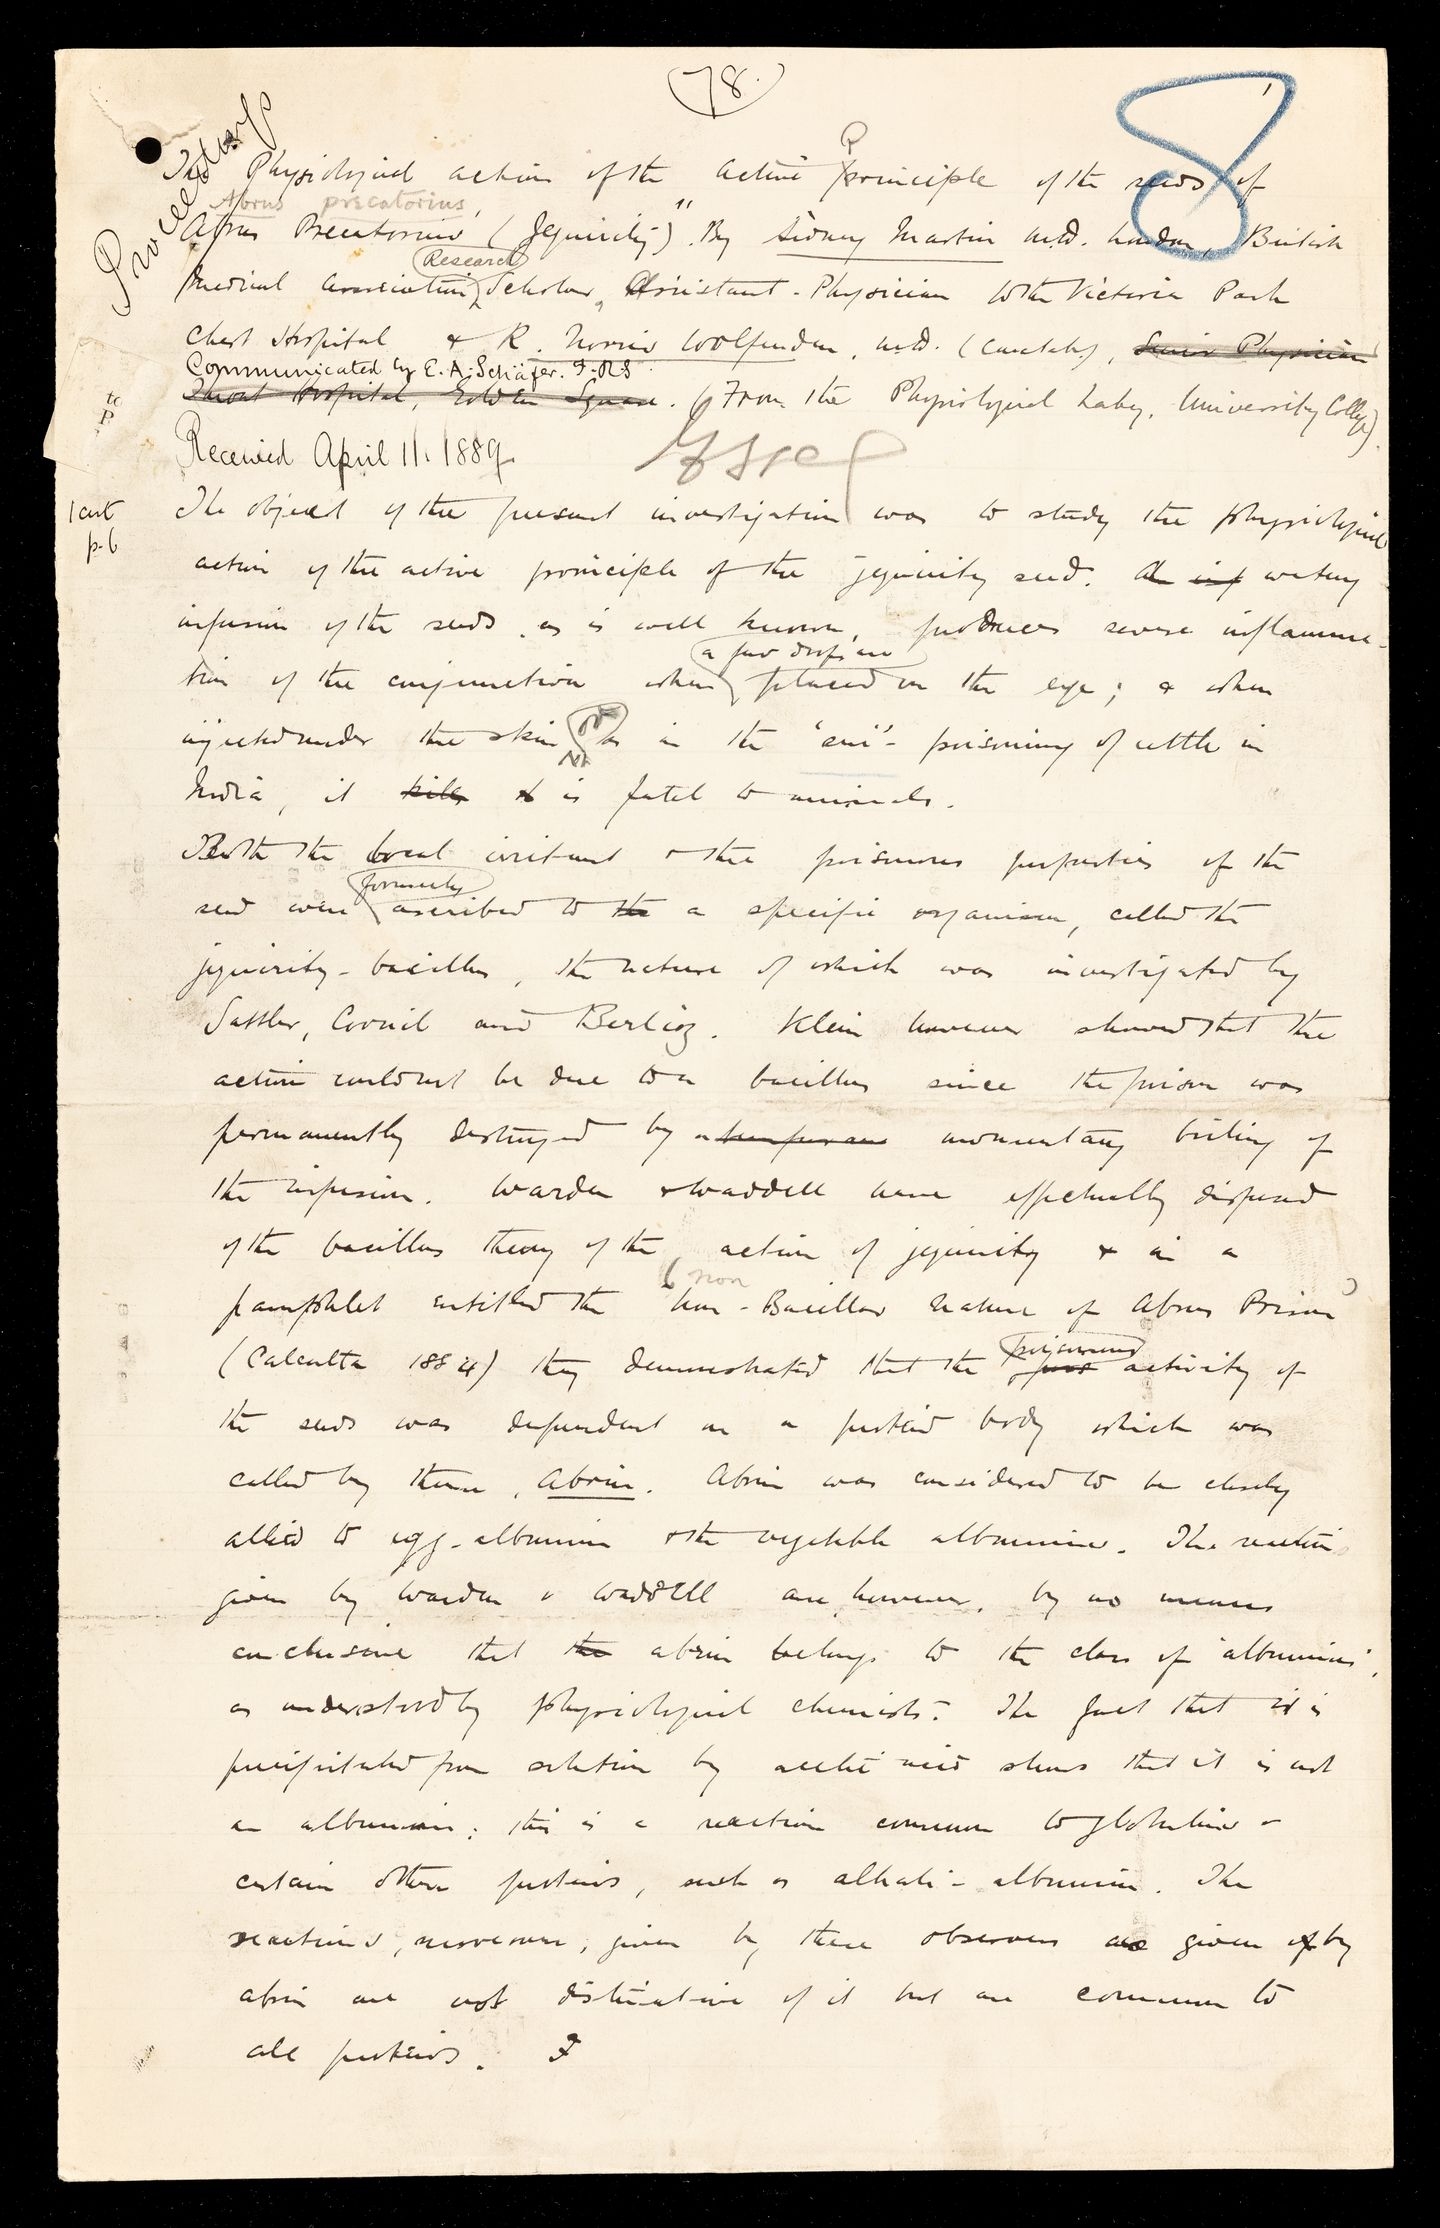 78.
8
Proceedings
The Physiological action of the Active Principle of the seeds of
Abrus precatorius
Abrus Precatorius (Jequirity)". By Sidney Martin M.D. London, British
Research
Medical Association Scholar, Assistant-Physician to the Victoria Park
Chest Hospital & R. Norris Wolfenden, M.D. (Cantab.), Senior Physician
Communicated by E. A. Schäfer. F.R.S
Throat Hospital, Golden Square. (From the Physiological Laby, University College).
Received April 11. 1889.
to
P
1 cut
p. 6
The object of the present investigation was to study the physiological
action of the active principle of the jequirity seed. A inf watery
infusion of the seeds, as is well known, produces severe inflamma-
a few drops are
tion of the conjunctiva when placed on the eye; & when
injected under the skin or as in the 'sui'- poisoning of cattle in
India, it kills & is fatal to animals.
Both the local irritant & the poisonous properties of the
formerly
seed were ascribed to the a specific organism, called the
jequirity-bacillus, the nature of which was investigated by
Sattler, Cornil and Berlioz. Klein however showed that the
action could not be due to a bacillus since the poison was
permanently destroyed by a momentary boiling of
the infusion. Warden & Waddell have effectually disposed
of the bacillus theory of the action of jequirity & in a
non
pamphlet entitled the "Non-Bacillar nature of Abrus Poison"
poisonous
(Calcutta 1884) they demonstrated that the activity of
the seeds was dependent on a proteid body which was
called by them, Abrin. Abrin was considered to be closely
allied to egg-albumin & the vegetable albumins. The reactions
given by Warden & Waddell are, however, by no means
conclusive that the abrin belongs to the class of 'albumins',
as understood by physiological chemists. The fact that it is
precipitated from solution by acetic acid shows that it is not
an albumin; this is a reaction common to globulins &
certain other proteids, such as alkali-albumin. The
reactions, moreover, given by these observers as given by
abrin are not distinctive of it but are common to
all proteids. F